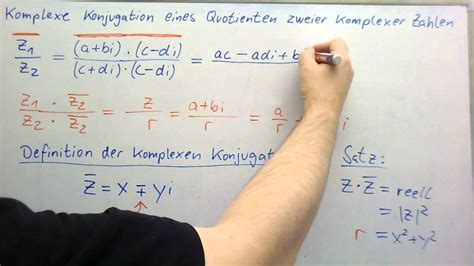 Komplexe Konjugation eines Quotienten zweier Komplexer Zahlen
z̄₁/z₂ = (a+bi)·(c-di)/(c+di)·(c-di) = ac-adi+b
z₁·z̄₂/z₂·z̄₂ = z/r = a+bi/r = a/r i
Definition der Komplexen Konjugat
z̄ = x ∓ yi
Satz:
z·z̄ = reell
= |z|²
r = x²+y²